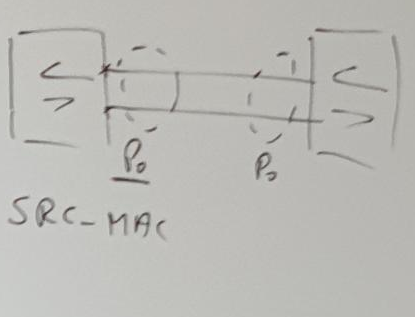 Po Po
SRC-MAC